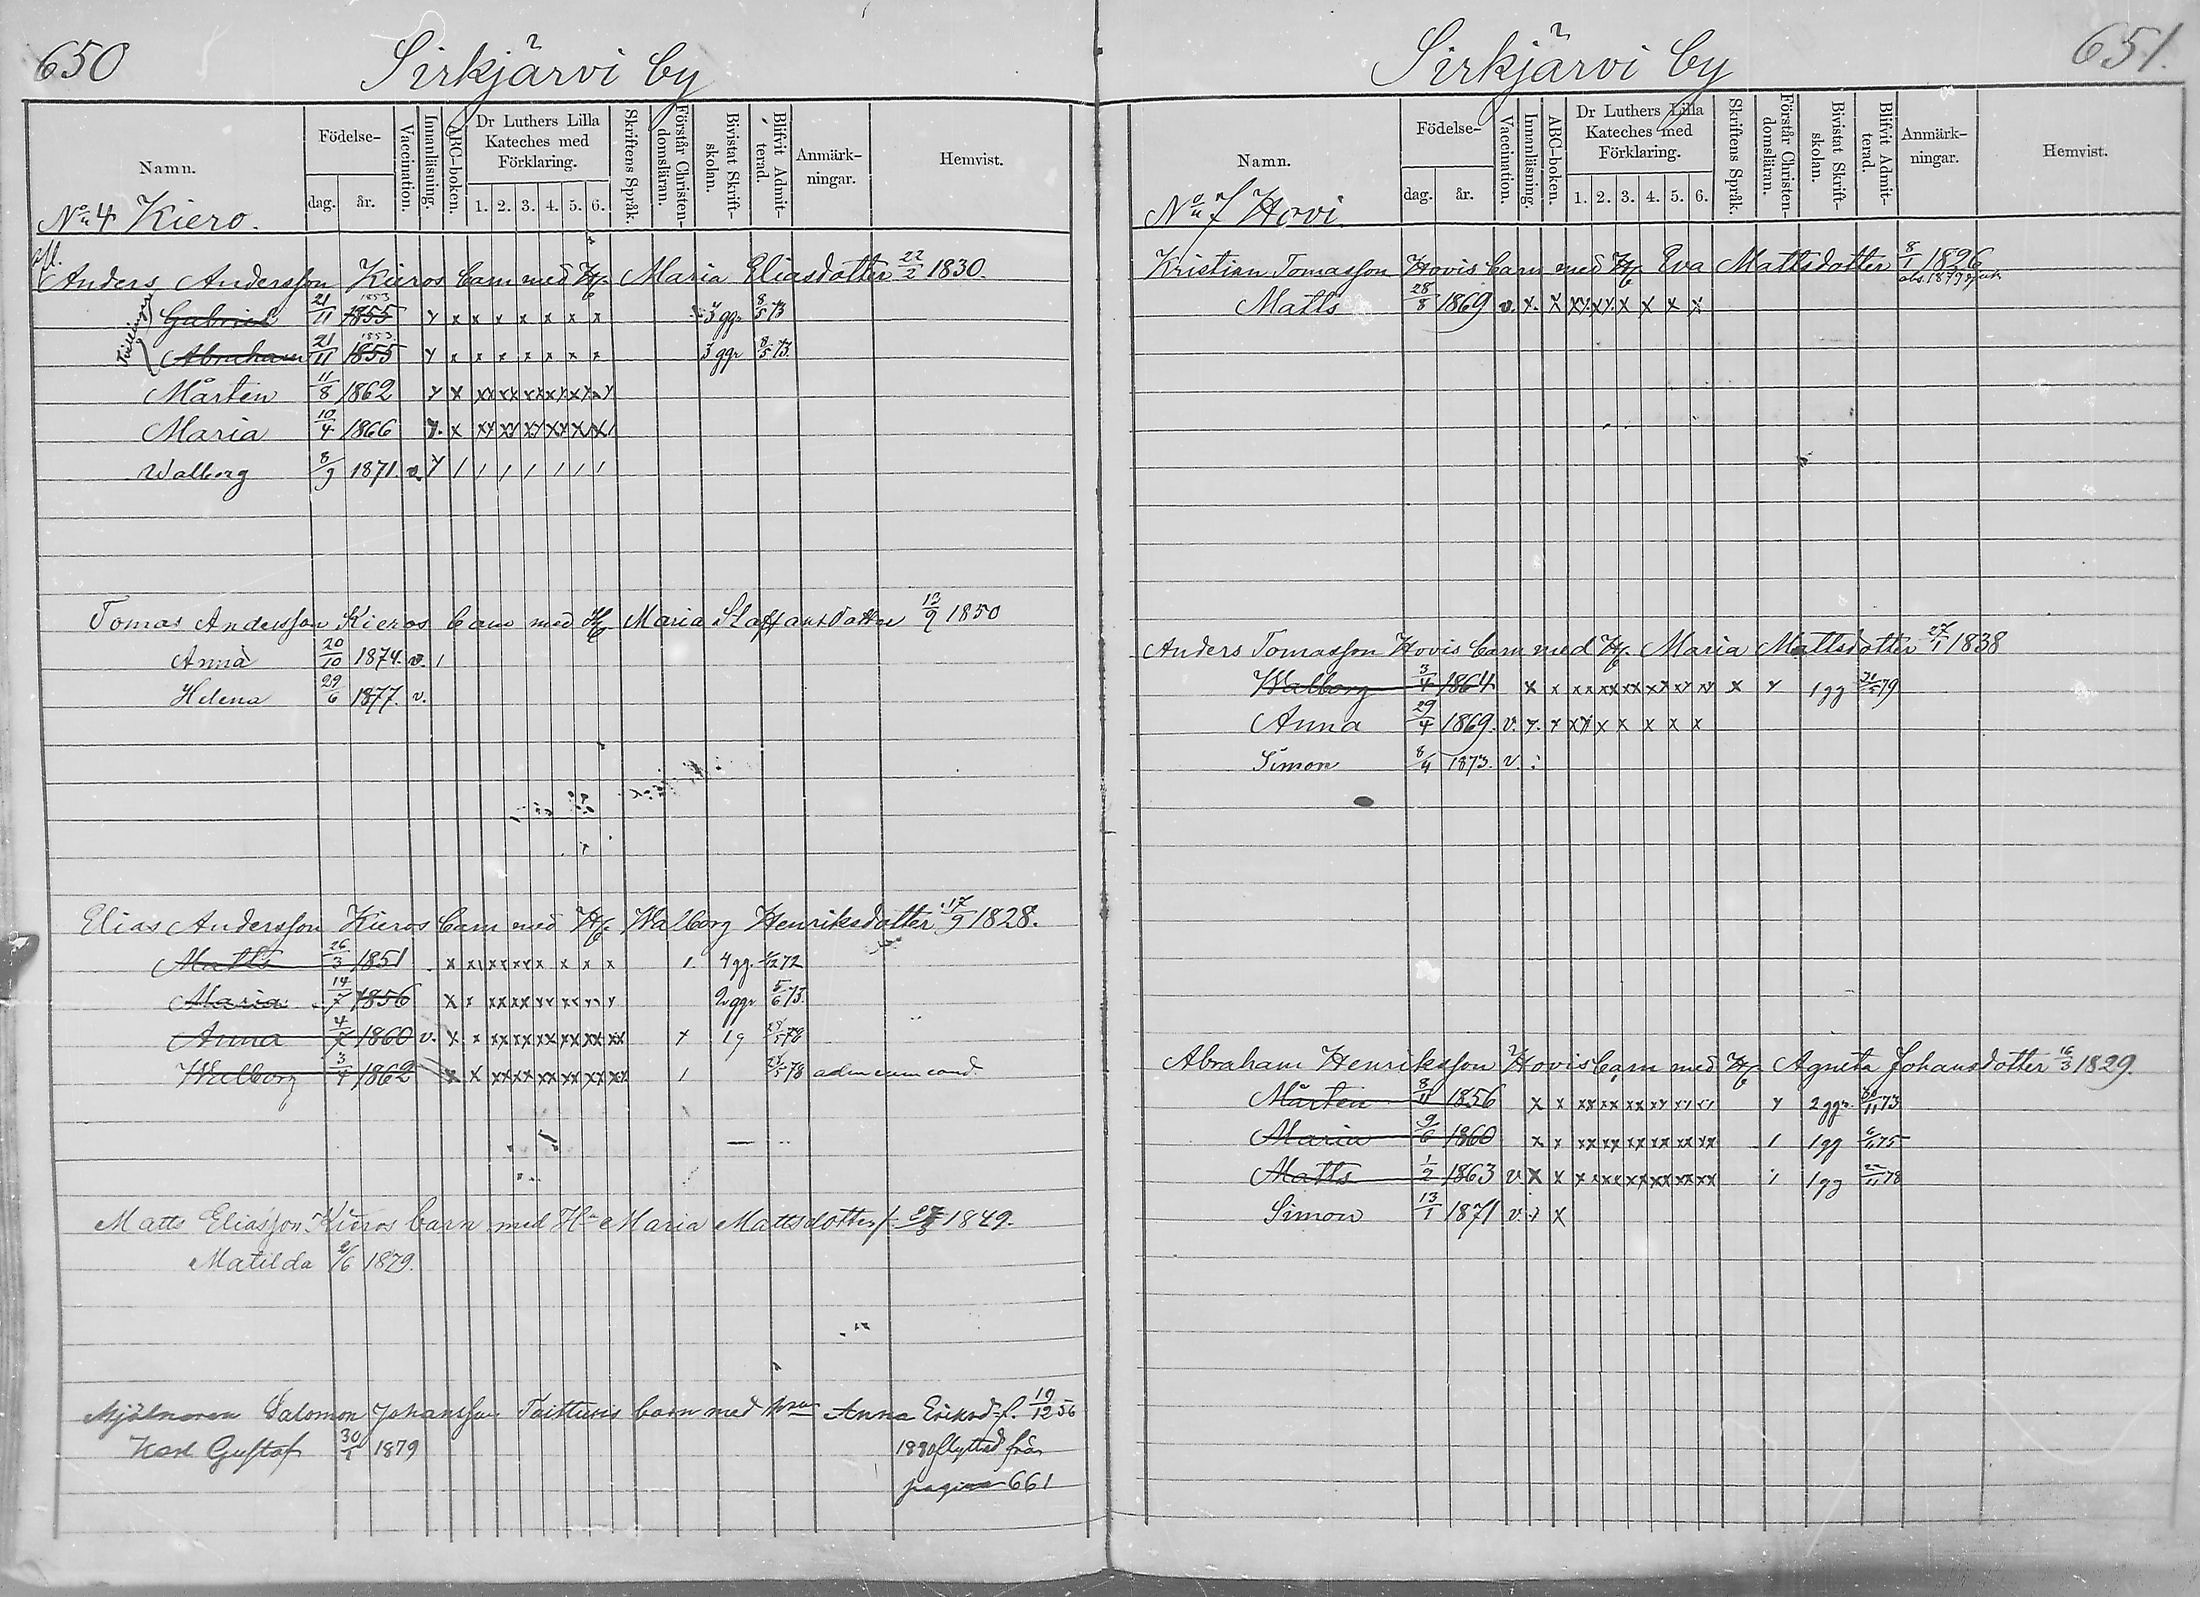 650
Sirkjärvi by
Namn.
Födelse-
dag.
år.
Vaccination.
Innanläsning.
ABC-boken.
Dr Luthers Lilla
Kateches med
Förklaring.
1. 2. 3. 4. 5. 6.
Skriftens Språk.
Förstår Christen-
domsläran.
Bivistat Skrift-
skolan.
Blifvit Admit-
terad.
Anmärk-
ningar.
Hemvist.
No 4 Kiero.
Anders Andersson Kieros barn med H. Maria Eliasdotter 22/2 1830.
Gabriel 21/11 1855 1853 y x x x x x x x 3 ggr 8/5 73
Abraham 21/11 1855 1853 y x x x x x x x 3 ggr 8/5 73.
Mårten 11/8 1862 y x xx xx xx xx xx
Maria 10/4 1866 y. x xx xx xx xx
Walborg 8/9 1871. v. y / / / / / / /
Tomas Andersson Kieros barn med H Maria Staffansdotter 13/9 1850
Anna 20/10 1874. v. /
Helena 29/6 1877. v.
Elias Andersson Kieros barn med H. Walborg Henriksdotter 17/9 1828.
Matts 26/3 1851 x xx xx xx x x x x 1 4 gg. 72
Maria 14/7 1856 x x xx xx xx xx 2 ggr 5/6 73.
Anna 4/7 1860 v. x x xx xx xx xx xx xx y 1 g 78
Walborg 3/4 1862 x x xx xx xx xx xx xx 1 78 adm cum cond.
Matts Eliasson Kieros barn med Hu Maria Mattsdotter f. 1849.
Matilda 2/6 1879.
Mjölnaren Salomon Johansson Toitturis barn med hru Anna Eriksd. f. 19/12 56
Karl Gustaf 30/1 1879 1880 flyttad från
pagina 661
651.
Sirkjärvi by
Namn.
Födelse-
dag.
år.
Vaccination.
Innanläsning.
ABC-boken.
Dr Luthers Lilla
Kateches med
Förklaring.
1. 2. 3. 4. 5. 6.
Skriftens Språk.
Förstår Christen-
domsläran.
Bivistat Skrift-
skolan.
Blifvit Admit-
terad.
Anmärk-
ningar.
Hemvist.
No 7 Hovi
Kristian Tomasson Hovis barn med H. Eva Mattsdotter 8/1 1826
Matts 28/8 1869 v. y. x xx xx. x x x x
Anders Tomasson Hovis barn med H. Maria Mattsdotter 27/1 1838
Walborg 3/4 1864 x x xx xx xx xx xx xx x y 1 gg 79
Anna 29/4 1869. v. y. y xx x x x x x
Simon 8/4 1873. v. :
Abraham Henriksson Hovis barn med H. Agneta Johansdotter 16/3 1829.
Mårten 8/11 1856 x x xx xx xx xx xx xx y 2 ggr. 30/11 73
Maria 9/6 1860 x x xx xx xx xx xx xx 1 1 gg 75
Matts 1/2 1863 v x x xx xx xx xx xx xx 1 1 gg 78
Simon 13/1 1871 v. x